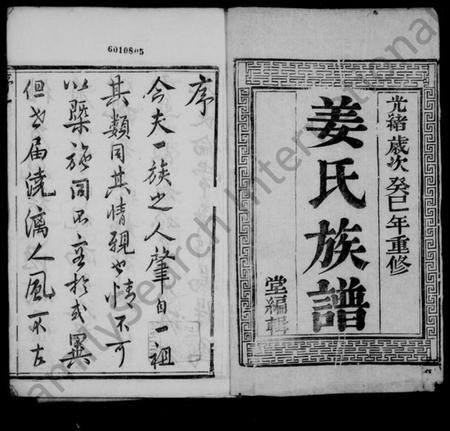 光緒歲次癸巳年重修
姜氏族譜
堂編輯
6010805
序
今夫一族之人肇自一祖
其類同其情親也情不可
以槩施同不容於或異
但世屆澆漓人風不古
FamilySearch International